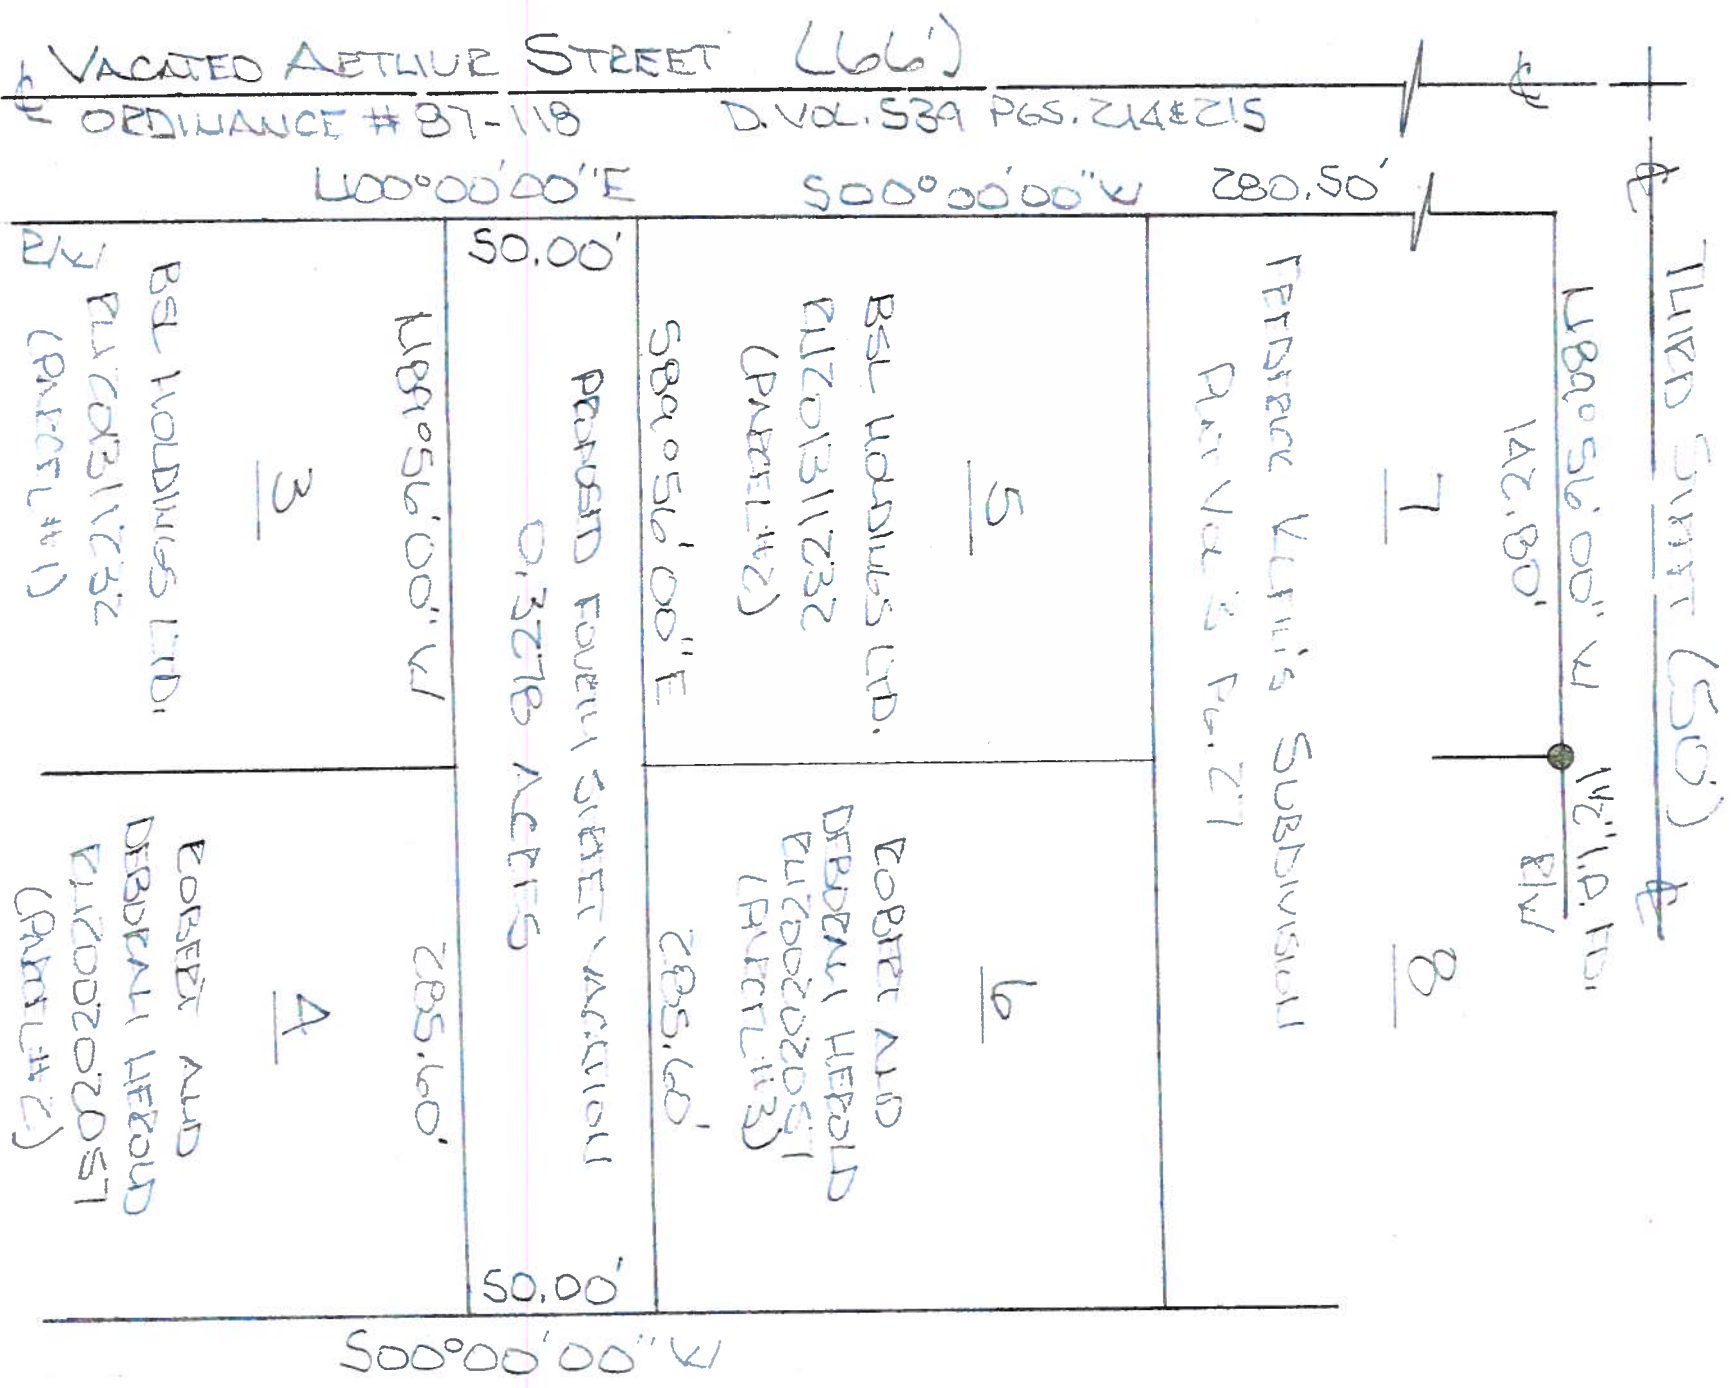 VACATED ARTHUR STREET (66')
ORDINANCE # 87-118 D. VOL. 539 PGS. 214 & 215
N00°00'00"E S00°00'00"W 280.50'
R/W
50.00'
BSL HOLDINGS LTD.
(PARCEL #1)
3
N89°56'00"W
285.60'
PROPOSED FOURTH STREET VACATION
0.3278 ACRES
S89°56'00"E
285.60'
BSL HOLDINGS LTD.
(PARCEL #2)
5
SUBDIVISION
PLAT VOL 3 PG. 27
7
N89°56'00"W
142.80'
THIRD STREET (50')
1 1/2" I.P. FD.
R/W
8
ROBERT AND
DEBORAH HEROLD
L5020200
(PARCEL #2)
4
ROBERT AND
DEBORAH HEROLD
L5020200
(PARCEL #3)
6
50.00'
S00°00'00"W